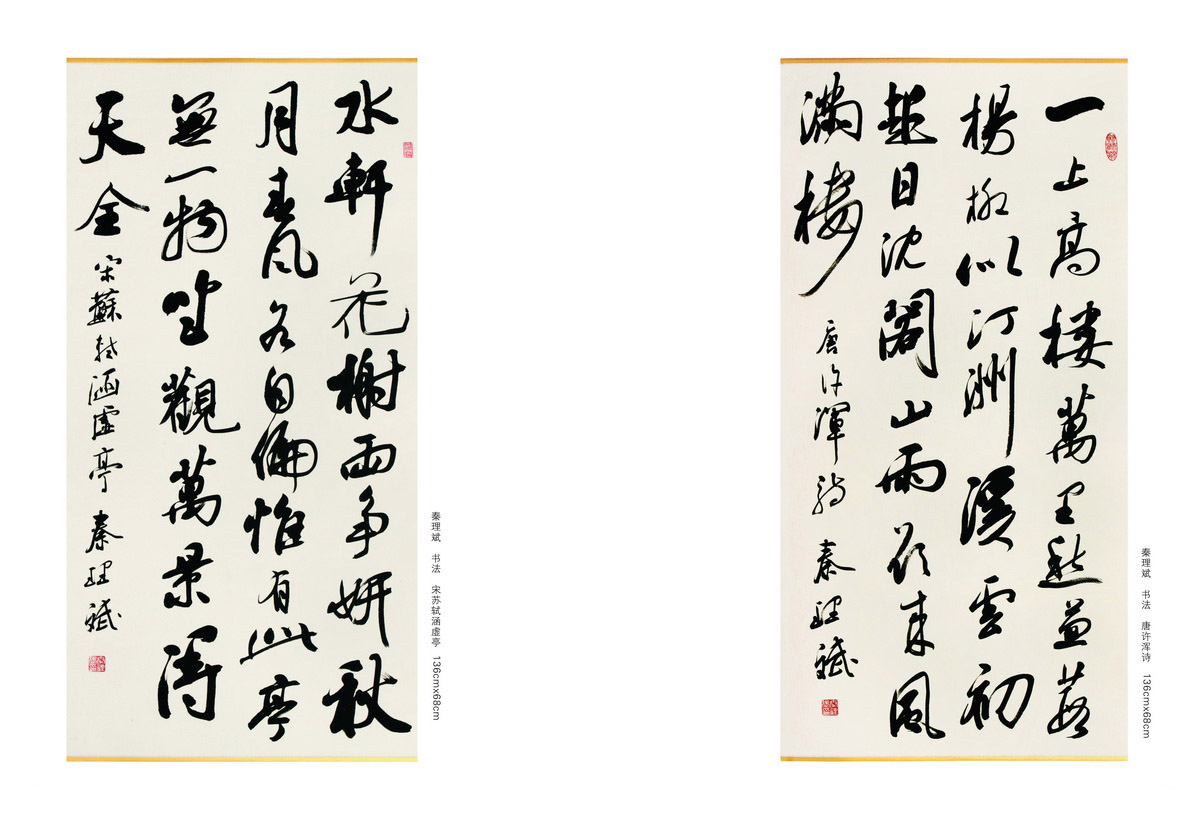 水軒花榭兩争妍秋
月春風各自偏惟有此亭
無一物坐觀萬景得
天全
宋蘇軾涵虚亭 秦理斌
秦理斌 书法 宋苏轼涵虚亭 136cmx68cm
一上高樓萬里愁蒹葭
楊柳似汀洲溪雲初
起日沈閣山雨欲來風
滿樓
唐許渾詩 秦理斌
秦理斌 书法 唐许浑诗 136cmx68cm